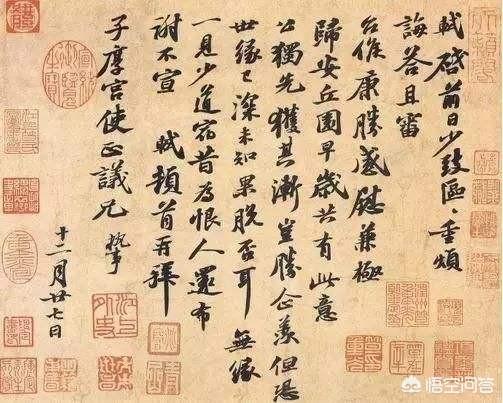 軾啓前日少致區〻重煩
誨答且審
台候康勝感慰兼極
歸安丘園早歲共有此意
公獨先獲其漸豈勝企羨但恐
世緣已深未知果脫否耳無緣
一見少道宿昔為恨人還布
謝不宣 軾頓首再拜
子厚宮使正議兄執事
十二月廿七日
悟空问答